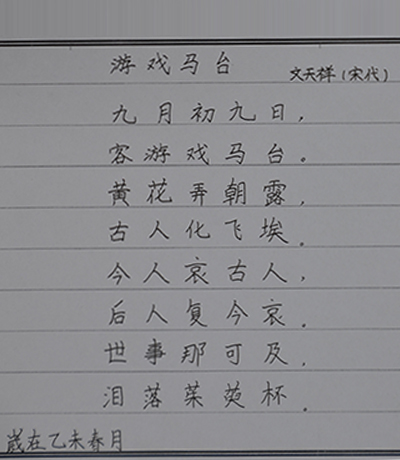 游戏马台
文天祥(宋代)
九月初九日,
客游戏马台。
黄花弄朝露,
古人化飞埃.
今人哀古人,
后人复今哀.
世事那可及,
泪落茱萸杯.
歲在乙未春月